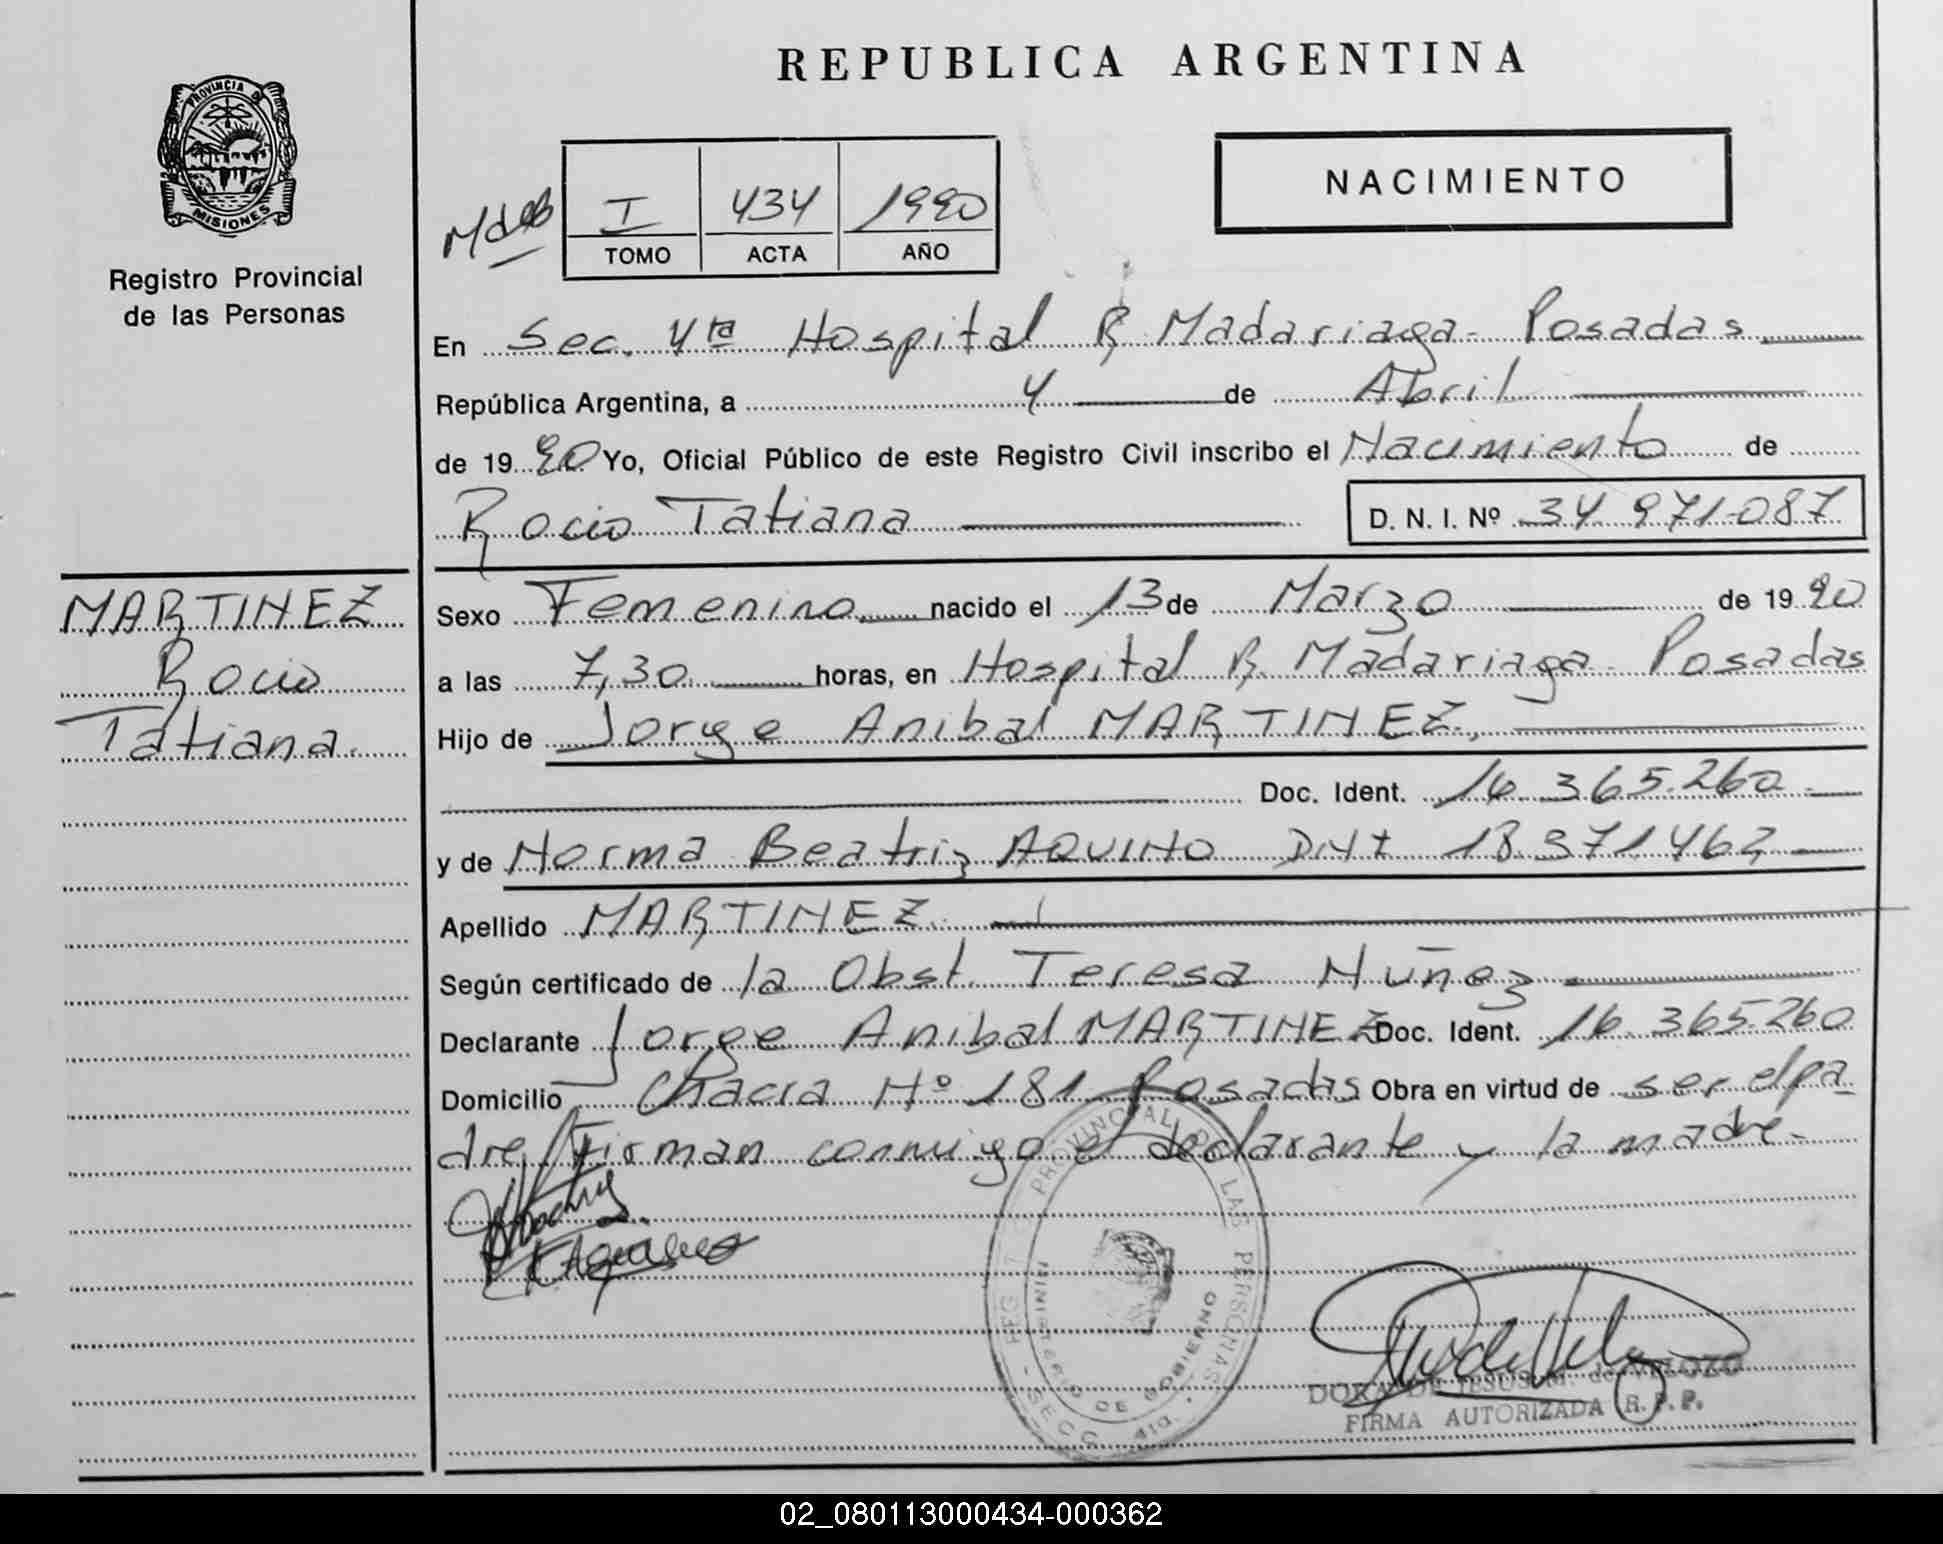 REPUBLICA ARGENTINA
PROVINCIA DE
MISIONES
Registro Provincial
de las Personas
I 434 1990
TOMO ACTA AÑO
NACIMIENTO
En Sec. 4ta Hospital R Madariaga - Posadas
República Argentina, a 4 de Abril
de 1990 Yo, Oficial Público de este Registro Civil inscribo el Nacimiento de
Rocio Tatiana D. N. I. Nº 34 971.087
MARTINEZ
Rocio
Tatiana.
Sexo Femenino nacido el 13 de Marzo de 1990
a las 7,30 horas, en Hospital R. Madariaga - Posadas
Hijo de Jorge Anibal MARTINEZ,
Doc. Ident. 16.365.260
y de Norma Beatriz AQUINO DNI 18.371.462
Apellido MARTINEZ
Según certificado de la Obst. Teresa Nuñez
Declarante Jorge Anibal MARTINEZ Doc. Ident. 16.365.260
Domicilio Chacra Nº 181 Posadas Obra en virtud de ser el pa
dre, Firman conmigo el declarante y la madre.
REG PROVINCIAL DE LAS PERSONAS
MINISTERIO DE GOBIERNO
- SECC. 4ta.
DORA DE JESUS M. de VELOZO
FIRMA AUTORIZADA R. P. P.
02_080113000434-000362